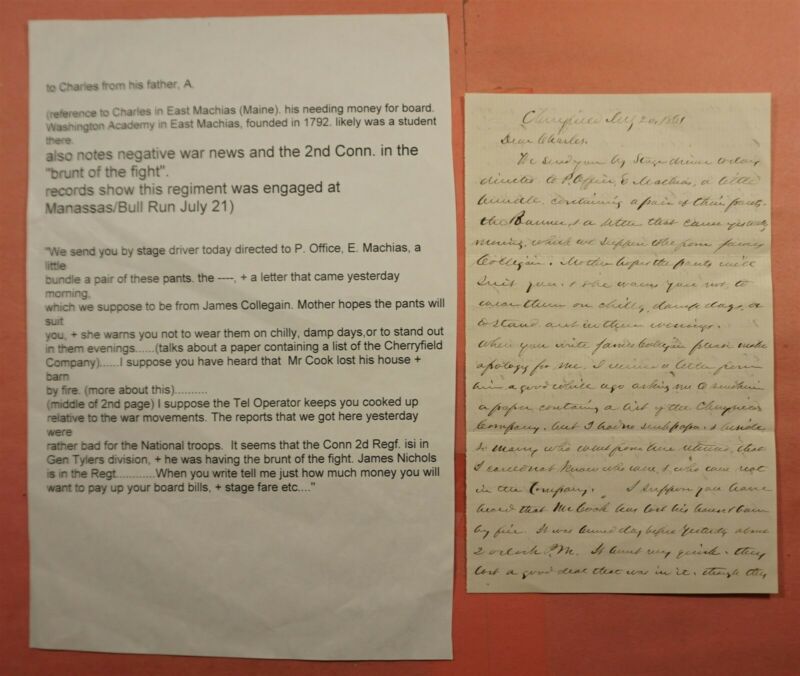 to Charles from his father, A.
(reference to Charles in East Machias (Maine). his needing money for board.
Washington Academy in East Machias, founded in 1792. likely was a student
there.
also notes negative war news and the 2nd Conn. in the
"brunt of the fight".
records show this regiment was engaged at
Manassas/Bull Run July 21)
"We send you by stage driver today directed to P. Office, E. Machias, a
little
bundle a pair of these pants. the ----, + a letter that came yesterday
morning,
which we suppose to be from James Collegain. Mother hopes the pants will
suit
you, + she warns you not to wear them on chilly, damp days,or to stand out
in them evenings......(talks about a paper containing a list of the Cherryfield
Company)......I suppose you have heard that Mr Cook lost his house +
barn
by fire. (more about this)..........
(middle of 2nd page) I suppose the Tel Operator keeps you cooked up
relative to the war movements. The reports that we got here yesterday
were
rather bad for the National troops. It seems that the Conn 2d Regf. isi in
Gen Tylers division, + he was having the brunt of the fight. James Nichols
is in the Regt............When you write tell me just how much money you will
want to pay up your board bills, + stage fare etc...."
1861
Dear Charles
We send you by Stage driver today
directed to P. Office, E Machias, a little
bundle, containing a pair of thin pants.
the Banner, & a letter that came yesterday
morning, which we suppose to be from James
Collegain. Mother hopes the pants will
suit you. & she warns you not to
wear them on chilly, damp days, or
to stand out in them evenings.
When you write James Collegain please make
apology for me. I received a letter from
him a good while ago asking me to send him
a paper containing a list of the Cherryfield
Company, but I had no such paper, & besides
so many who went from here returned, that
I could not know who were & who were not
in the Company. I suppose you have
heard that Mr Cook has lost his house & barn
by fire. It was burned day before yesterday about
2 oclock P.M. It burnt very quick. they
lost a good deal that was in it. though they